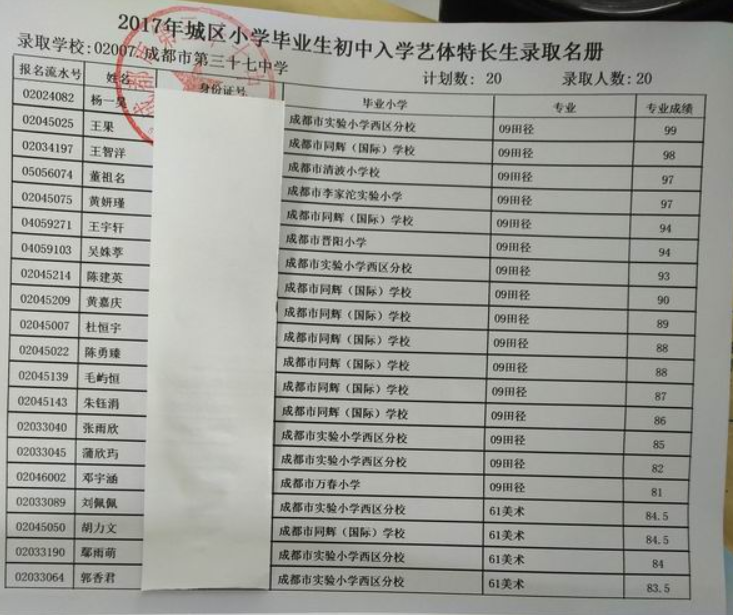 2017年城区小学毕业生初中入学艺体特长生录取名册
录取学校:02007 成都市第三十七中学 计划数: 20 录取人数:20
报名流水号 姓名 身份证号 毕业小学 专业 专业成绩
02024082 杨一昊 成都市实验小学西区分校 09田径 99
02045025 王果 成都市同辉（国际）学校 09田径 98
02034197 王智洋 成都市清波小学校 09田径 97
05056074 董祖名 成都市李家沱实验小学 09田径 97
02045075 黄妍瑾 成都市同辉（国际）学校 09田径 94
04059271 王宇轩 成都市晋阳小学 09田径 94
04059103 吴姝葶 成都市实验小学西区分校 09田径 93
02045214 陈建英 成都市同辉（国际）学校 09田径 90
02045209 黄嘉庆 成都市同辉（国际）学校 09田径 89
02045007 杜恒宇 成都市同辉（国际）学校 09田径 88
02045022 陈勇臻 成都市同辉（国际）学校 09田径 88
02045139 毛屿恒 成都市同辉（国际）学校 09田径 87
02045143 朱钰涓 成都市同辉（国际）学校 09田径 86
02033040 张雨欣 成都市实验小学西区分校 09田径 85
02033045 蒲欣玙 成都市实验小学西区分校 09田径 82
02046002 邓宇涵 成都市万春小学 09田径 81
02033089 刘佩佩 成都市实验小学西区分校 61美术 84.5
02045050 胡力文 成都市同辉（国际）学校 61美术 84.5
02033190 鄢雨萌 成都市实验小学西区分校 61美术 84
02033064 郭香君 成都市实验小学西区分校 61美术 83.5